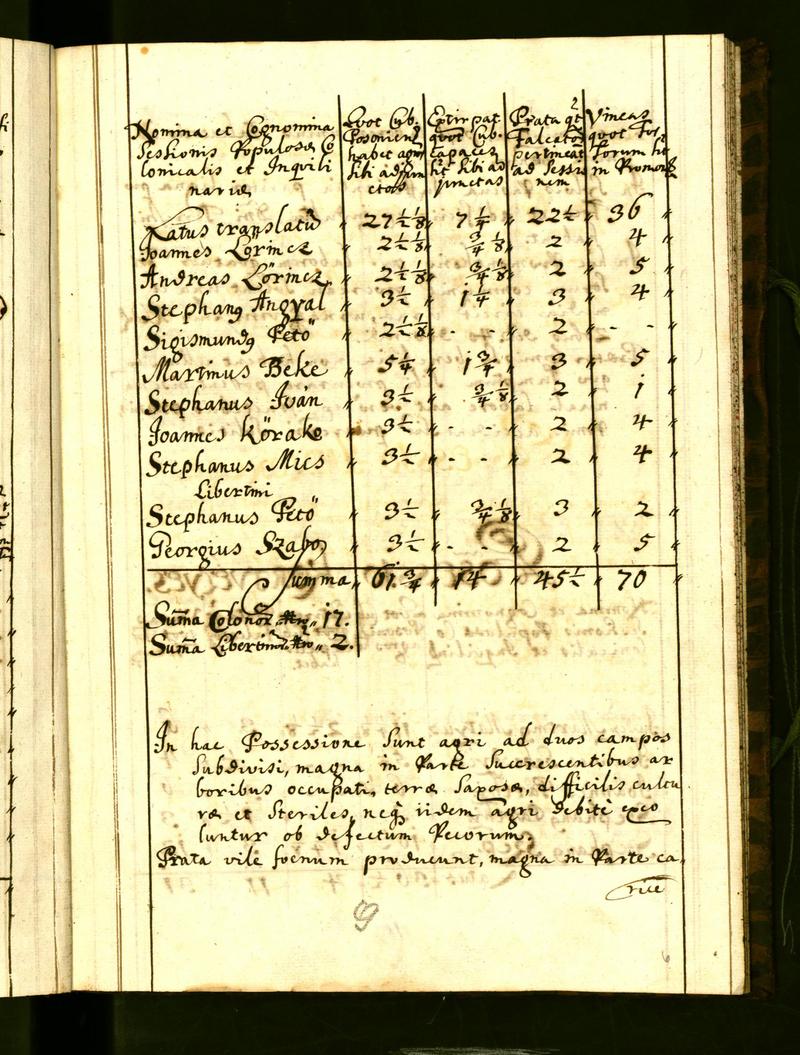 Nomina et Cognomina
Sessionis Populosæ Co
lonicalis et Inquili
nariæ
Quot Cub.
Posonien̄
habet agros
sibi adjun
ctos
Extirpat
quot Cub.
capaces
ht sibi ad
junctas
Prata qt
Falcator
pertineat
ad Sessio
nem
Vineas
quot Fos
sorum ht
in Promont
Latus translatū " 27 1/2 1/8 " 7 1/4 " 22 1/2 " 36 "
Joannes Lőrincz " 2 1/2 1/8 " 3/4 1/8 " 2 " 4 "
Andreas Lőrincz " 2 1/2 1/8 " 3/4 1/8 " 2 " 5 "
Stephanꝰ Angyal " 3 1/2 " 1 1/4 " 3 " 4 "
Sigismundꝰ Pető " 2 1/2 1/8 " - - " 2 " - - "
Martinus Beke " 5 1/4 " 1 3/4 " 3 " 5 "
Stephanus Iván " 3 1/2 " 3/4 1/8 " 2 " 1 "
Joannes Kőrake " 3 1/2 " - - " 2 " 4 "
Stephanus Mics " 3 1/2 " - - " 2 " 4 "
Libertini
Stephanus Pető " 3 1/2 " 3/4 1/8 " 3 " 2 "
Georgius Szabo " 3 1/2 " - - " 2 " 5 "
Summa " 61 3/4 " 14 " 45 1/2 " 70 "
Sum̄a Colonor 17.
Sum̄a Libertinor 2.
In hac Possessione sunt agri ad duos campos
subdivisi, magna in Parte succrescentibus ar
boribus occupati, terræ saxosæ, difficilis cultu
ræ et steriles, neq iidem agri debitè exco
luntur ob defectum Pecorum.
Prata vile foenum producunt, magna in Parte ca
rice
9
6